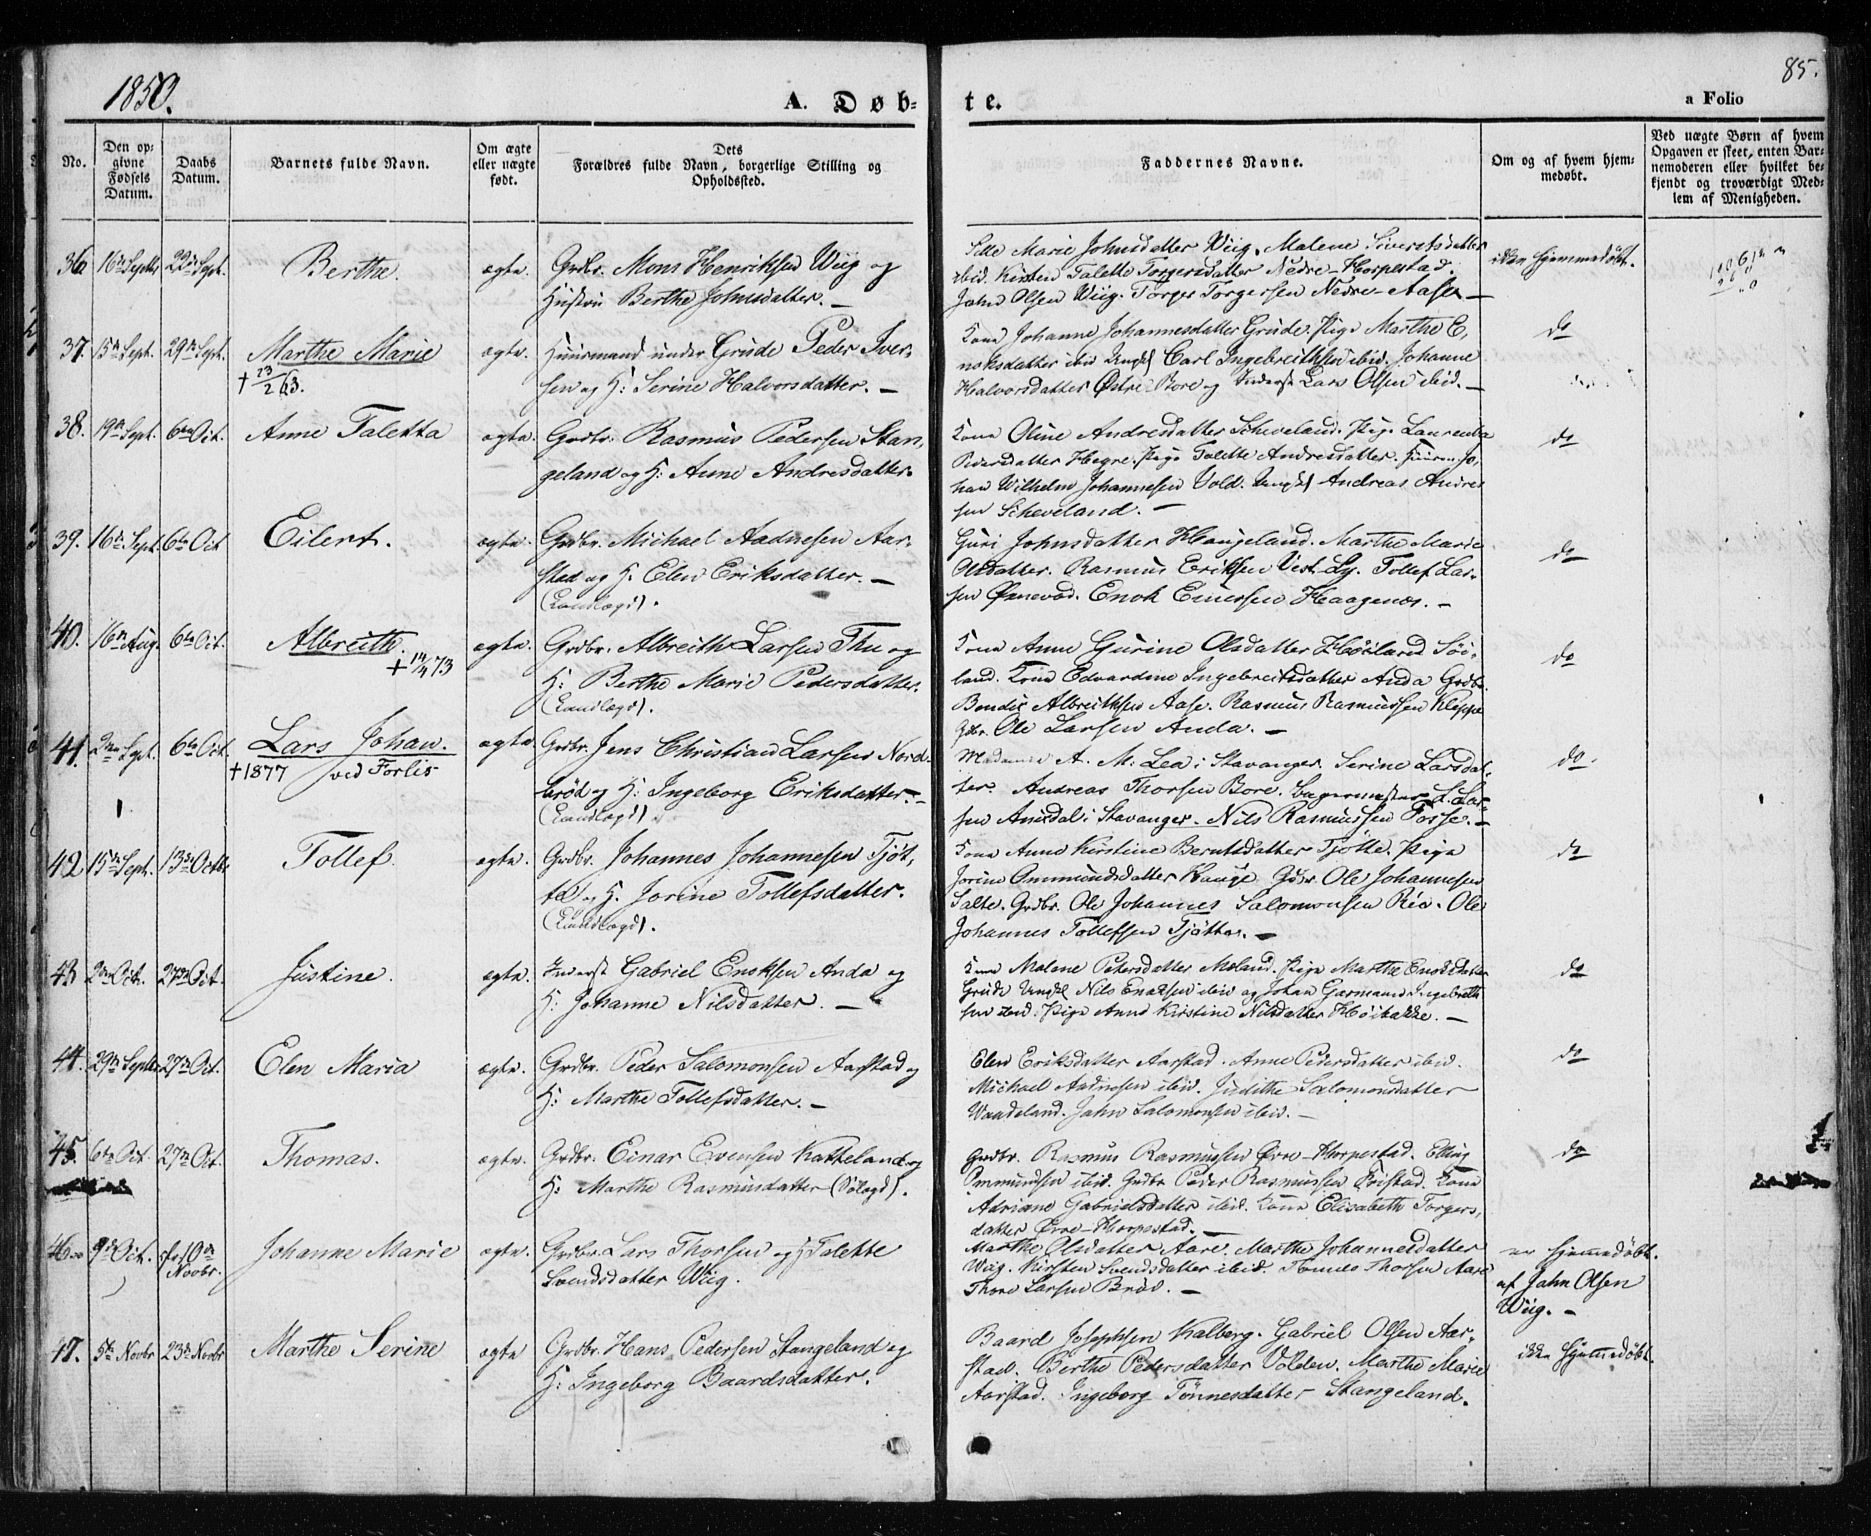 1850.
A. Døb-
te.
85.
a Folio
No.
Den op-
givne
Fødsels
Datum.
Daabs
Datum.
Barnets fulde Navn.
Om ægte
eller uægte
født.
Dets
Forældres fulde Navn, borgerlige Stilling og
Opholdssted.
Faddernes Navne.
Om og af hvem hjem-
medøbt.
Ved uægte Børn af hvem
Opgaven er skeet, enten Bar-
nemoderen eller hvilket be-
kjendt og troværdigt Med-
lem af Menigheden.
36 16de Septbr 22de Sept. Berthe. ægte. Grdbr. Mons Henriksen Wiig og
Hustru Berthe Johnsdatter. —
Marie Johnsdatter Wiig. Malene Sivertsdatter
ibid. Kirsten Talette Torgersdatter Nedre-Horpestad.
John Olsen Wiig. Torger Torgersen Nedre-Aase —
ikke hjemmedøbt.
37. 15de Sept. 29de Sept. Marthe Marie ægte. Huusmand under Grude Peder Iver-
† 23/2 63.
sen og H: Serine Halvorsdatter. —
Kone Johanne Johannesdatter Grude. Pige Marthe E,
noksdatter ibid Ungk. Carl Ingebreithsen ibid. Johanne
Halvorsdatter Østre Bore og Inderst Lars Olsen ibid. —
do
38. 19de Sept. 6te Oct. Anne Taletta ægte. Grdbr. Rasmus Pedersen Stan,
geland og H: Anne Andresdatter.
Kone Oline Andresdatter Scheveland. Pige Laurentza
Pedersdatter Hegre. Pige Talette Andresdatter. Jo,
han Wilhelm Johannesen Vold. Ungk. Andreas Andre
sen Scheveland. —
do
39. 16de Sept. 6te Oct Eilert. ægte. Grdbr. Michael Aadnesen Aar-
sted og H: Elen Eriksdatter. —
(Landlægd).
Guri Johnsdatter Haugeland. Marthe Marie
Olsdatter. Rasmus Eriksen Vest-Ly. Tollef Lar-
sen Ørnevad. Enok Einersen Haagenes. —
do
40. 16de Aug. 6te Oct. Albreith. ægte. Grdbr. Albreith Larsen Thu og
† 14/4 73
H: Berthe Marie Pedersdatter.
(Landlægd).
Kone Anne Gurine Olsdatter Høiland Søi-
land. Kone Edvardine Ingebreitsdatter Anda Grdbr.
Bendix Albreithsen Aase. Rasmus Rasmussen Kleppe
Gbr. Ole Larsen Anda. —
do
41. 2den Sept. 6te Oct. Lars Johan. ægte Grdbr. Jens Christian Larsen Nord-
† 1877 ved Forlis
brød og H: Ingeborg Eriksdatter. —
(Landlægd)
Madame A. M. Lea i Stavanger. Serine Larsdat-
ter. Andreas Thorsen Bore. Bagermester L. Lar-
sen Amdal i Stavanger. Nils Rasmussen Fosse. —
do.
42 15de Sept. 13de Octbr Tollef. ægte. Grdbr. Johannes Johannesen Tjøt,
ta og H. Jorine Tollefsdatter.
(Landlægd).
Kone Anne Kirstine Berntsdatter Tjøtte. Pige
Jorine Ommundsdatter Hauge Gdbr. Ole Johannesen
Salte. Grdbr. Ole Johannes Salomonsen Rée. Ole
Johannes Tollefsen Tjøtte. —
do
43 2den Oct. 27de Oct. Justine. ægte. Inderst Gabriel Enoksen Anda og
H: Johanne Nilsdatter. —
Kone Malene Petersdatter Meland. Pige Marthe Enoksdatter
Grude Ungk. Nils Enoksen ibid og Johan Garmann Ingebreth
sen ibid. Pige Anne Kirstine Nilsdatter Høibakke. —
do
44. 29de Septbr 27de Oct. Elen Maria ægte. Grdbr. Peder Salomonsen Aarstad og
H: Marthe Tollefsdatter. —
Elen Eriksdatter Aarstad. Anne Pedersdatter ibid.
Michael Aadnesen ibid. Judithe Salomonsdatter
Waadeland. John Salomonsen ibid. —
do
45. 6te Oct. 27de Oct. Thomas. ægte. Grdbr. Einar Evensen Katteland og
H: Marthe Rasmusdatter (Sølægd).
Grdbr. Rasmus Rasmussen Øvre-Horpestad. Elling
Ommundsen ibid. Grdbr Peder Rasmussen Friistad. Kone
Adriane Gabrielsdatter ibid. Kone Elisabeth Torgers,
datter Øvre-Horpestad. —
do
46 9de Oct. 10de
Novbr. Johanne Marie ægte. Grdbr. Lars Thorsen og H Talette
Svendsdatter Wiig.
Marthe Olsdatter Aare. Marthe Johannesdatter
Wiig. Kirsten Svendsdatter ibid. Tønnes Thorsen Aase
Thore Larsen Brød. —
er hjemmedøbt.
af John Olsen
Wiig. —
47. 5te Novbr 23de Novbr Marthe Serine ægte Grdbr. Hans Pedersen Stangeland og
H: Ingeborg Baardsdatter.
Baard Josephsen Kalberg. Gabriel Olsen Aar-
stad. Berthe Pedersdatter Volden. Marthe Marie
Aarstad. Ingeborg Tønnesdatter Stangeland.
ikke hjemmedøbt.